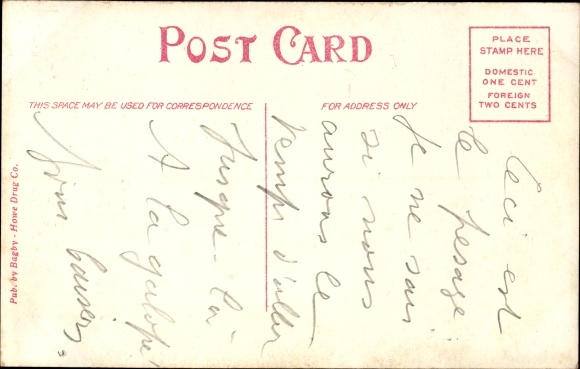 POST CARD
PLACE
STAMP HERE
DOMESTIC
ONE CENT
FOREIGN
TWO CENTS
THIS SPACE MAY BE USED FOR CORRESPONDENCE
FOR ADDRESS ONLY
Pub. by Bagby - Howe Drug Co.
Ceci est
le pesage
Je ne sais
si nous
aurons le
temps d'aller
Jusque-là
A la galope
baisers